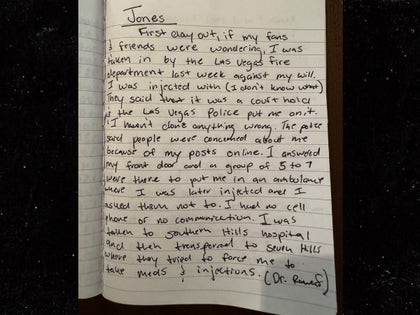 Jones
First day out, if my fans
& friends were wondering, I was
taken in by the Las Vegas fire
department last week against my will.
I was injected with (I don't know what)
They said that it was a court hold
& the Las Vegas Police put me on it.
I hasn't done anything wrong. The police
said people were concerned about me
because of my posts online. I answered
my front door and a group of 5 to 7
were there to put me in an ambulance
where I was later injected and I
asked them not to. I had no cell
phone or no communication. I was
taken to southern Hills hospital
and then transpered to seven Hills
where they tried to force me to
take meds & injections. (Dr.